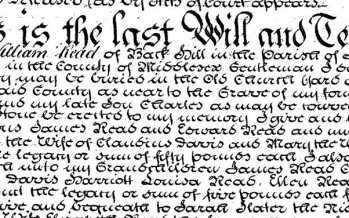 deceased (as by Acts of Court appears.
is the last Will and Te
William Read of Back Hill in the Parish of
in the County of Middlesex Gentleman I do
may be buried in the Old Church Yard
and County as near to the Grave of my
and my late Son Charles as may be
Stone be erected to my memory I give and
James Read and Edward Read and
the Wife of Claudius Davis and Mary the W
legacy or sum of fifty pounds each I also
unto my Grandchildren James Read
Davis Harriott Louisa Read Ellen Read
the legacy or sum of five pounds each
and bequeath to Sarah Slater the Ni